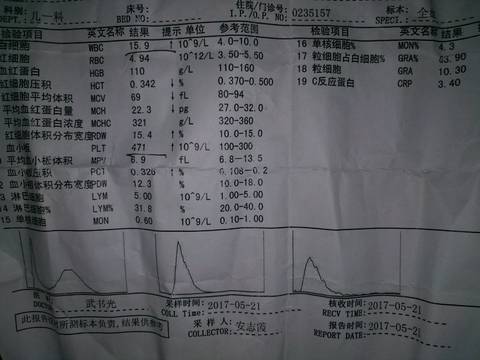 科别: 儿一科 床号: 住院/门诊号: 标本: 全
BED NO.: I.P./O.P. NO.: 0235157 SPECI.:
检验项目 英文名称 结果 提示 单位 参考范围 检验项目 英文名称 结果
白细胞 WBC 15.9 ↑ 10^9/L 4.0-10.0 16 单核细胞% MON% 4.3
红细胞 RBC 4.94 10^12/L 3.50-5.50 17 粒细胞占白细胞% GRA% 63.90
血红蛋白 HGB 110 g/L 110-160 18 粒细胞 GRA 10.30
红细胞压积 HCT 0.342 ↓ % 0.370-0.500 19 C反应蛋白 CRP 3.40
红细胞平均体积 MCV 69 ↓ fL 80-94
平均血红蛋白量 MCH 22.3 ↓ pg 27.0-32.0
平均血红蛋白浓度 MCHC 321 g/L 320-360
红细胞体积分布宽度 RDW 15.4 ↑ % 10.0-15.0
血小板 PLT 471 ↑ 10^9/L 100-300
平均血小板体积 MPV 6.9 fL 6.8-13.5
血小板压积 PCT 0.326 ↑ % 0.108-0.2
血小板体积分布宽度 PDW 12.3 % 10.0-18.0
淋巴细胞 LYM 5.00 10^9/L 1.00-5.00
14 淋巴细胞% LYM% 31.8 % 20.0-40.0
15 单核细胞 MON 0.60 10^9/L 0.10-1.00
武书光 采样时间: 2017-05-21 核收时间: 2017-05-21
COLL Time: RECV TIME:
此报告仅对所测标本负责,结果供参考 采样人: 安志茵 报告时间: 2017-05-21
COLLECTOR: REPORT DATE: